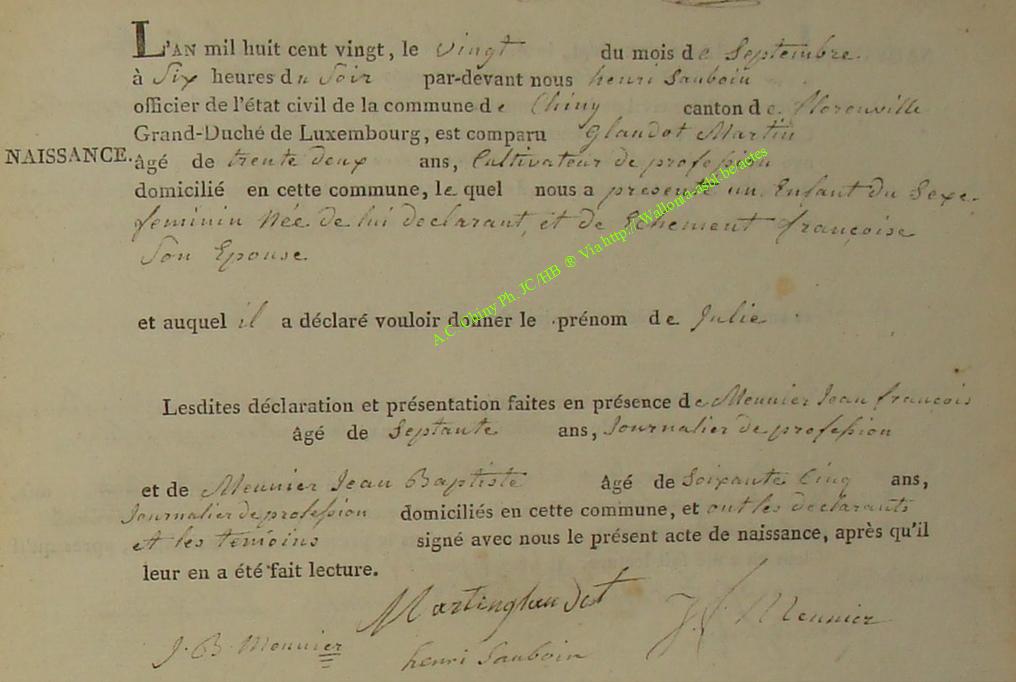 L'AN mil huit cent vingt, le vingt du mois de Septembre
à Six heures du Soir par-devant nous henri Sauboin
officier de l'état civil de la commune de Chiny canton de florenville
Grand-Duché de Luxembourg, est comparu Glaudot Martin
NAISSANCE. âgé de trente deux ans, Cultivateur de profession
domicilié en cette commune, le quel nous a presenté un Enfant du Sexe
feminin Née de lui declarant, et de Echement françoise
Son Epouse
et auquel il a déclaré vouloir donner le prénom de Julie
Lesdites déclaration et présentation faites en présence de Meunier Jean françois
âgé de Septante ans, Journalier de profession
et de Meunier Jean Baptiste âgé de Soixante Cinq ans,
Journalier de profession domiciliés en cette commune, et ont les declarants
et les temoins signé avec nous le présent acte de naissance, après qu'il
leur en a été fait lecture.
Martin glaudot
J. f. Meunier
J. B. Meunier
henri Sauboin
A.C Chiny Ph. JC /HB ® Via http://Wallonia-asbl.be/actes